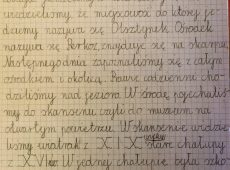 wiedzieliśmy, że miejscowość do której je-
dziemy nazywa się Olsztynek. Ośrodek
nazywa się Perkoz, znajduje się na skarpie.
Następnego dnia zapoznaliśmy się z całym
ośrodkiem i okolicą. Prawie codziennie cho-
dziliśmy nad jezioro. W środę pojechaliś-
my do skansenu czyli do muzeum na
otwartym powietrzu. W skansenie widzie-
liśmy wiatrak z XIX wieku stare chałupy
z XVIII w. W jednej chałupie była szko-